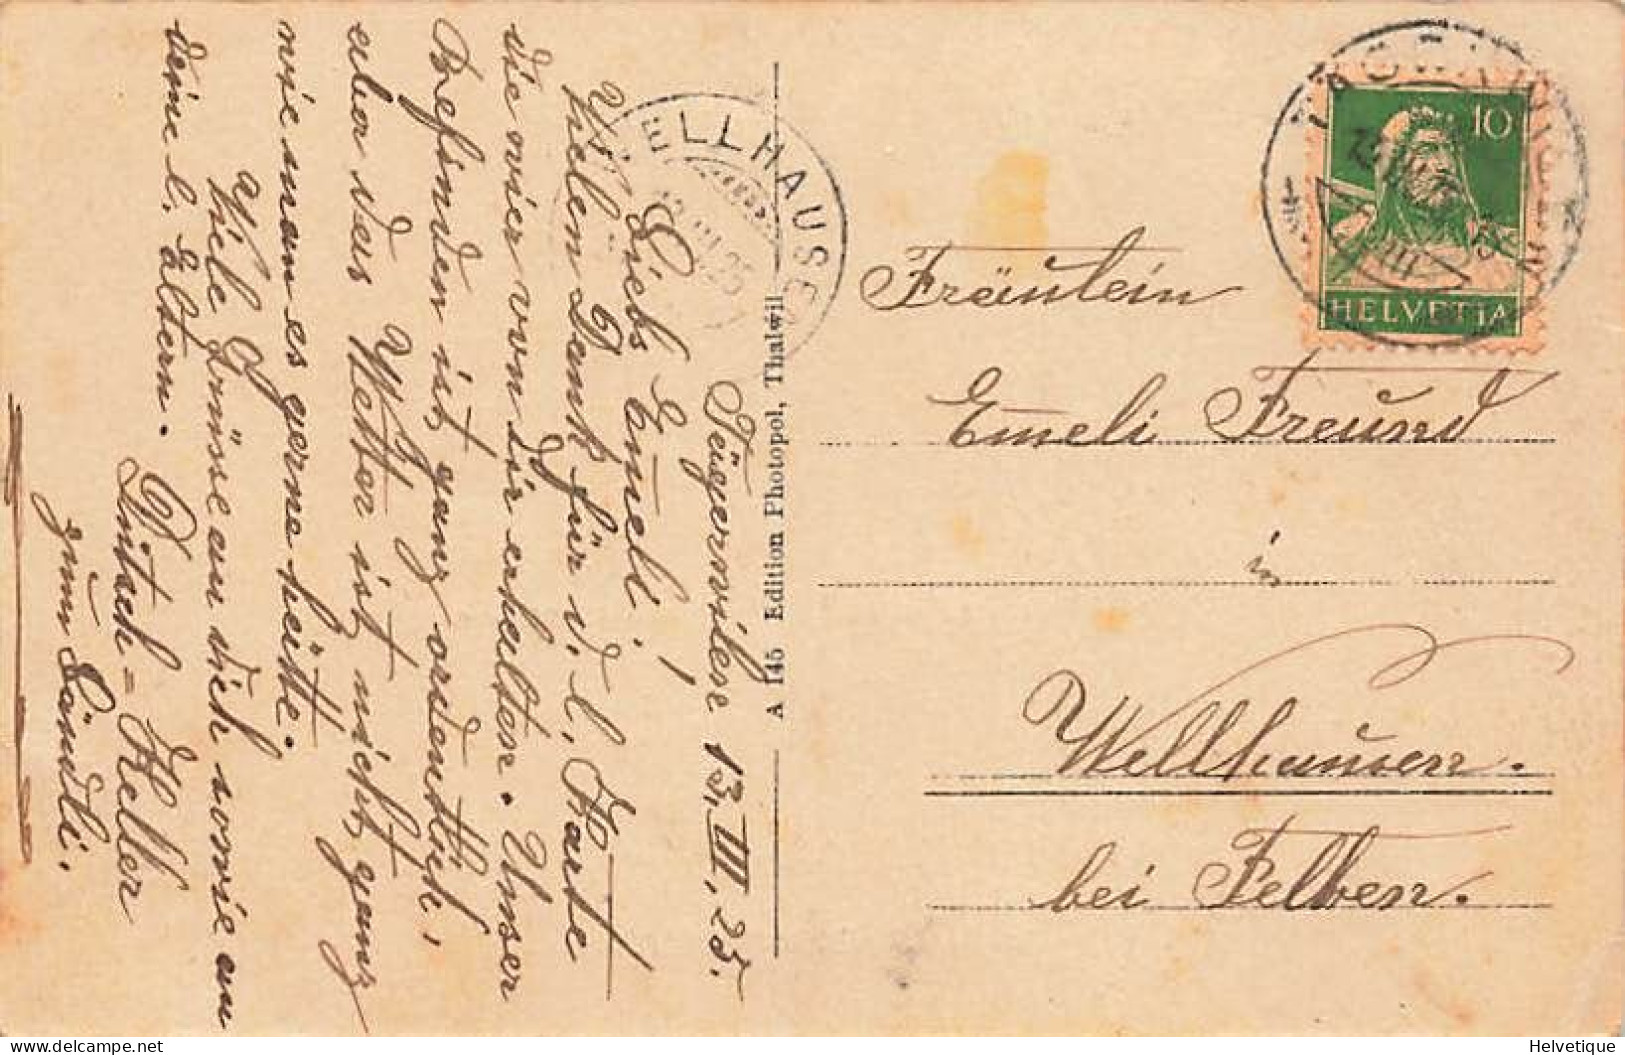 Tägerwilen 13. III. 25.
Liebs Emeli!
Vielen Dank für d. l. Karte
die wier von dir erhalten. Unser
Befinden ist ganz ordentlich,
aber das Wetter ist nicht ganz
wie man es gerne hätte.
Viele Grüsse an dich sowie an
deine l. Eltern.
Keller
zum Ländli.
A 145 Edition Photopol, Thalwil
ELLHAUSE
25
10
HELVETIA
Fräulein
Emeli Freund
in
Wellhausen.
bei Felben.
delcampe.net
Helvetique